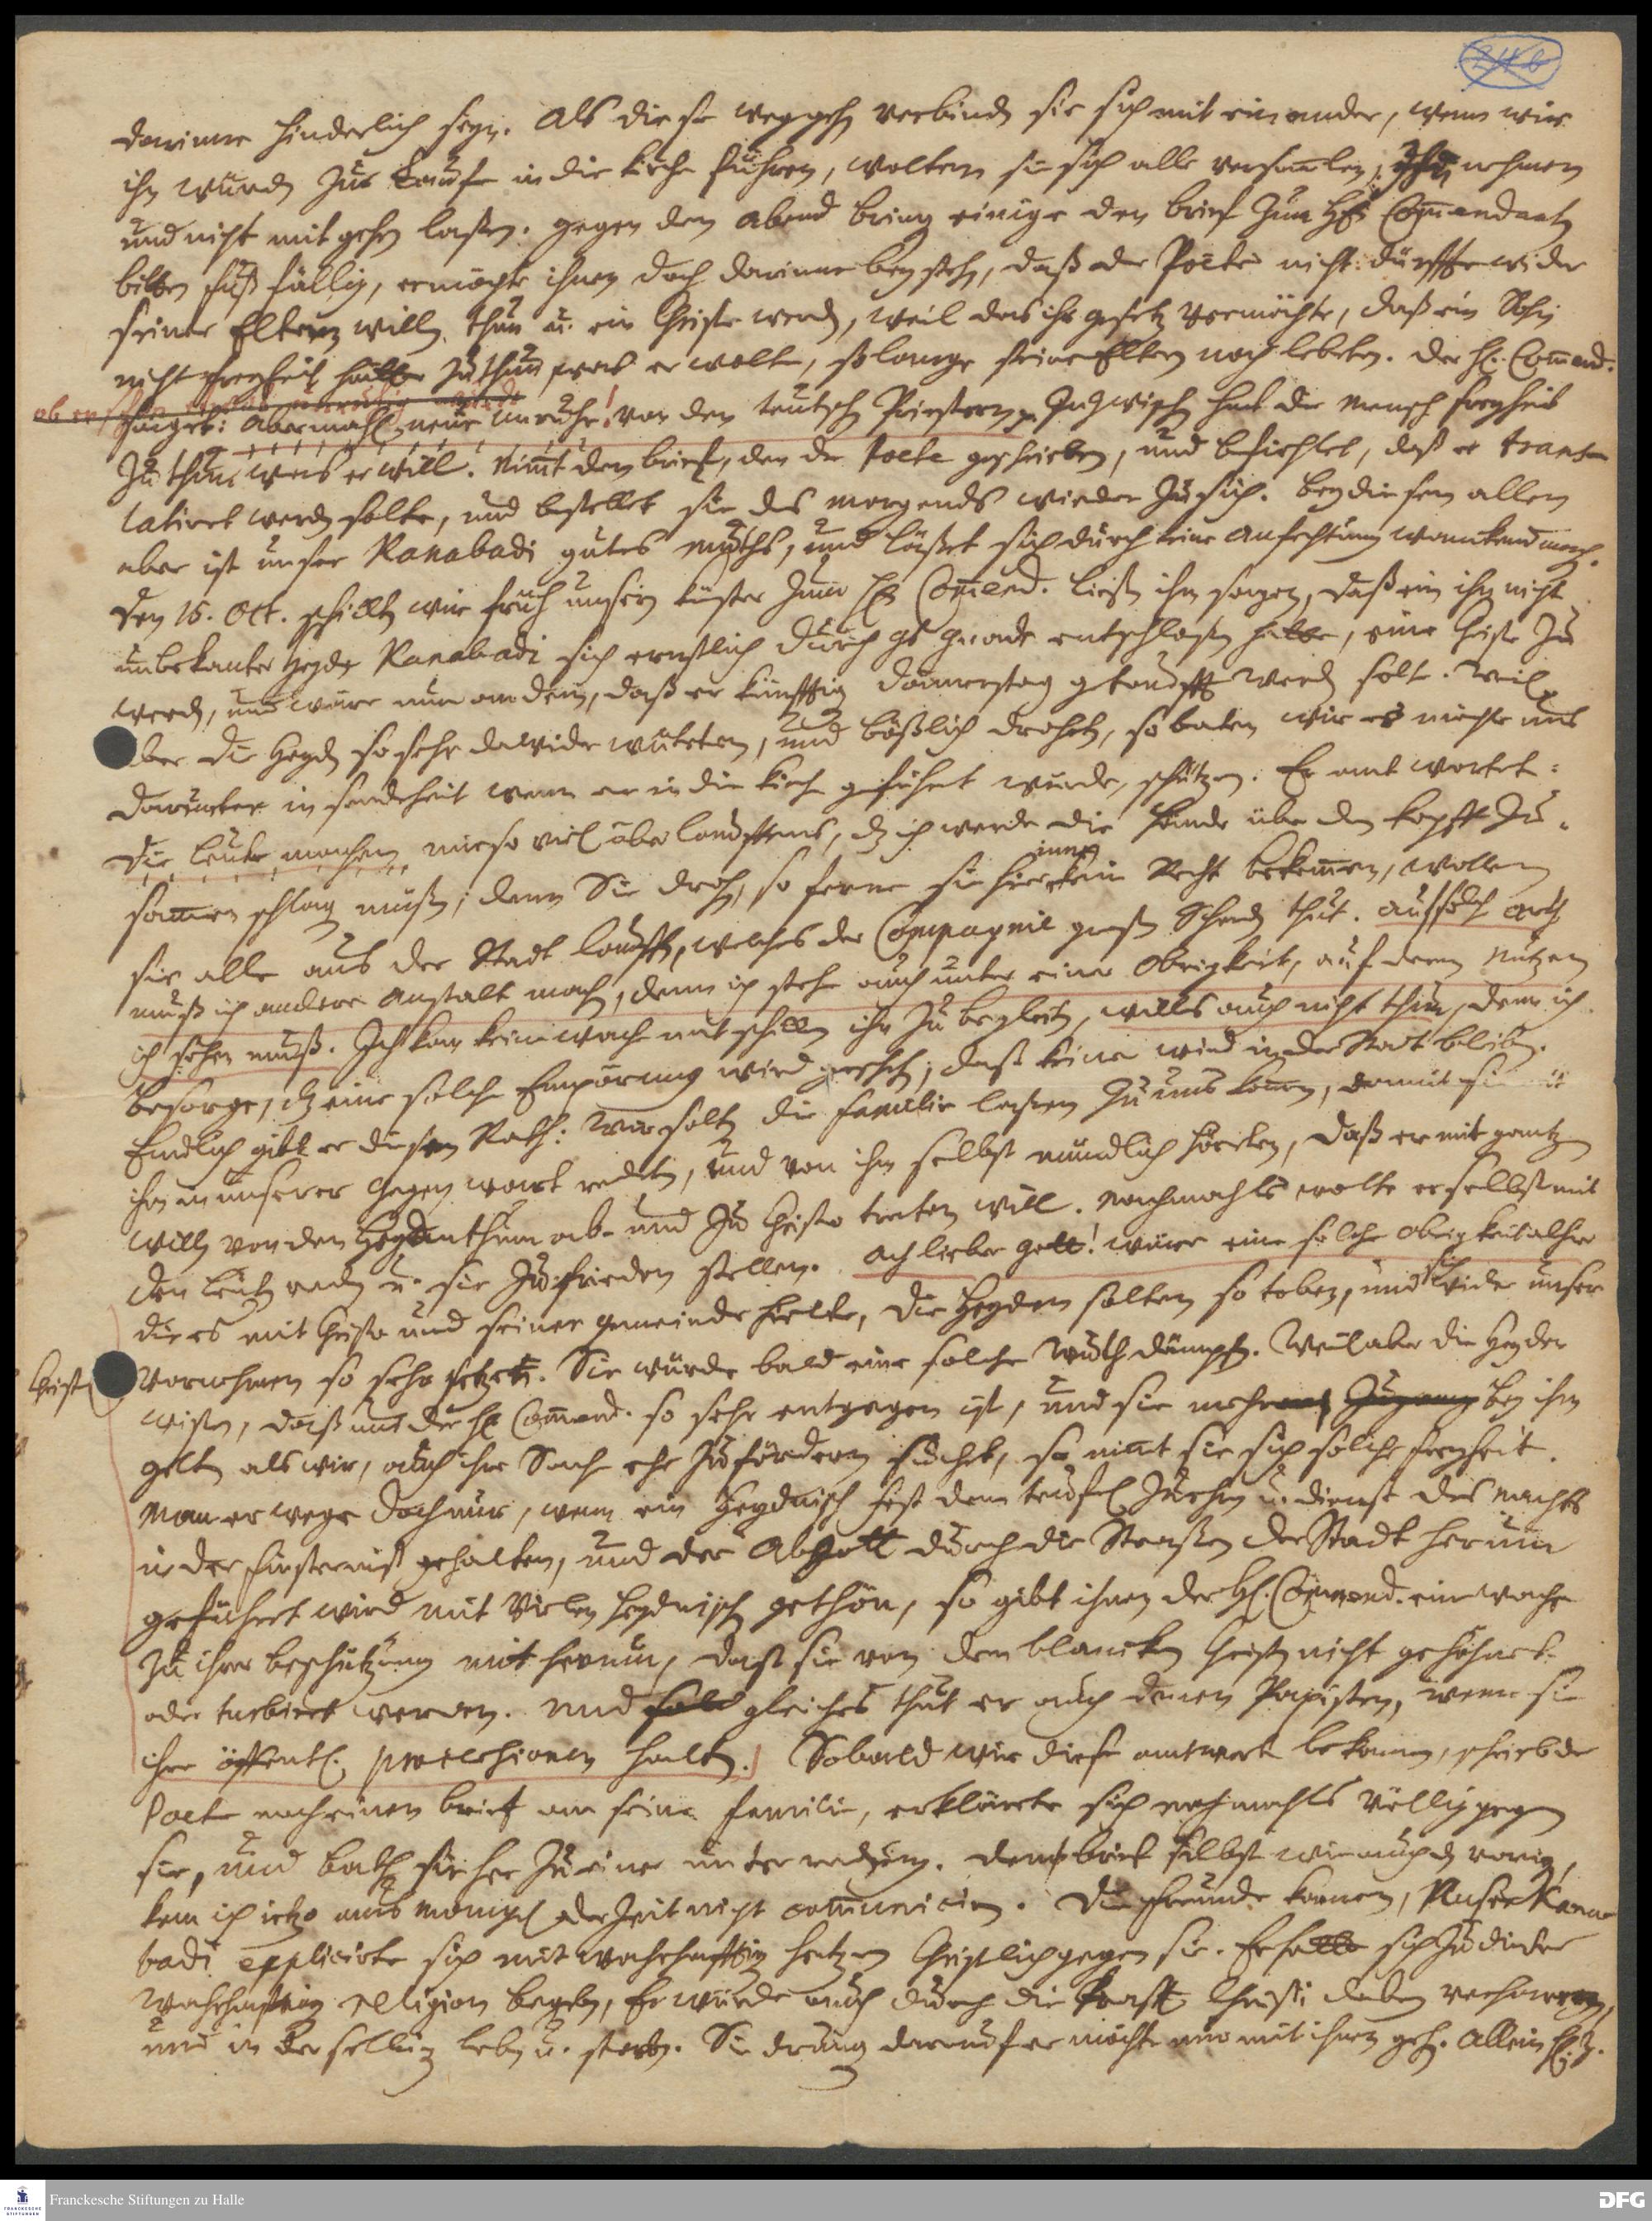 246
darinne hinderlich seyn. Als diese weggehn verbinden sie sich mit einander, wenn wir
ihn wurden zur Taufe in die Kirche führen, wolten sie sich alle versamlen, ihn nehmen
und nicht mit gehen laßen. gegen den Abend bringen einige den brief zum HE. Commendanten
bitten fußfällig, er möchte ihnen doch darinne beystehn, daß der Poete nicht dürffte wider
seiner Eltern willen thun u. ein Christe werden, weil das ihr gesetz vermöchte, daß ein Sohn
nicht freyheit hätte zu thun was er wolte, so lange seine Eltern noch lebeten. der H. Commend.
saget: Abermahl neue unruhe! von den teutschen Priestern. Inzwischen hat der Mensch freyheit
zu thun was er will. Nimt den brief, den der Poete geschrieben, und befiehlet, daß er trans-
latiret werden solte, und bestellet sie des morgends wieder zu sich. bey diesen allen
aber ist unser Kanabadi gutes muths, und läßet sich durch keine Anfechtung wanckend mach.
den 16. Oct. schickten wir früh unsern küster zum HE Commend. ließen ihm sagen, daß ein ihm nicht
unbekanter Heyde Kanabadi sich ernstlich durch gs gnade entschloßen hätte, eine Christe zu
werden, und wäre nun an dem, daß er künfftig donnerstag getaufft werden solt. weil
aber die Heyden so sehr dawider wüteten, und bößlich droheten, so baten wir er möchte uns
darunter in sonderheit wenn er in die Kirche geführet wurde, schützen. Er antwortet:
die leute machen mir so viel überlauffens, dz ich werde die hände über den kopff zu-
sammen schlagen müßen; denn Sie drohen, so ferne sie hierinnen kein Recht bekommen, wollen
sie alle aus der Stadt lauffen, welches der Compagnie großen Schaden thut. auf solche arth
muß ich andere Anstalt machen, denn ich stehe auch unter einer Obrigkeit, auf deren Nutzen
ich sehen muß. Ich kan keine wache mit schicken ihn zu begleiten, will es auch nicht thun, denn ich
besorge, dz eine solche Empörung wird geschehen, daß keiner wird in der Stadt bleiben.
Endlich gibt er diesen Rath: wir solten die familie laßen zu uns kommen, damit sie mit
ihm in unserer gegenwart redeten, und von ihm selbst mündlich höreten, daß er mit gantzen
willen von den Heydenthum ab- und zu Christo treten will. nachmahls wolte er selbst mit
den leuten reden u. sie zu frieden stellen. Ach lieber gott! wäre eine solche Obrigkeit alhier
die es mit Christo und seiner gemeinde hielte, die Heyden solten so toben, und sich wider unser
Christl. Vornehmen so sehr setzen. Sie würde bald eine solche wuth dämpfen. Weil aber die Heyden
wißen, daß uns der HE Commend. so sehr entgegen ist, und sie mehr bey ihm
gelten als wir, auch ihre Sache ehe zu fördern suchet, so nimt sie sich solche freyheit.
Man erwege doch nur, wenn ein Heydnisch fest dem teufel zu ehren u. dienst des Nachts
in der finsterniß gehalten, und der Abgott durch die Straßen der Stadt herum
geführet wird mit vielen heydnischen gethön, so gibt ihnen der H. Commend. eine wache
zu ihrer beschützung mit herum, daß sie von den blancken Christen nicht gehöhnet
oder turbiret werden. und gleiches thut er auch denen Papisten, wenn sie
ihre öffentl. processionen halten. Sobald wir diese antwort bekamen, schrieb der
Poete noch einen brieff an seine familie, erklärete sich nochmahls völlig gegen
sie, und bath sie her zu einer unterredung. den brief selbst wie auch den vorigen
kan ich ietzo aus mangel der Zeit nicht communiciren. Die freunde kamen, Unser Kana-
badi explicirte sich mit wahrhafftigen hertzen Christlich gegen sie. Er sich zu dieser
wahrhafftigen religion begeben, Er würde auch durch die Krafft Christi dabey verharren,
und in derselbigen leben u. sterben. Sie drungen darauf er möchte nur mit ihnen gehen. Allein
Franckesche Stiftungen zu Halle
FRANCKESCHE STIFTUNGEN
DFG